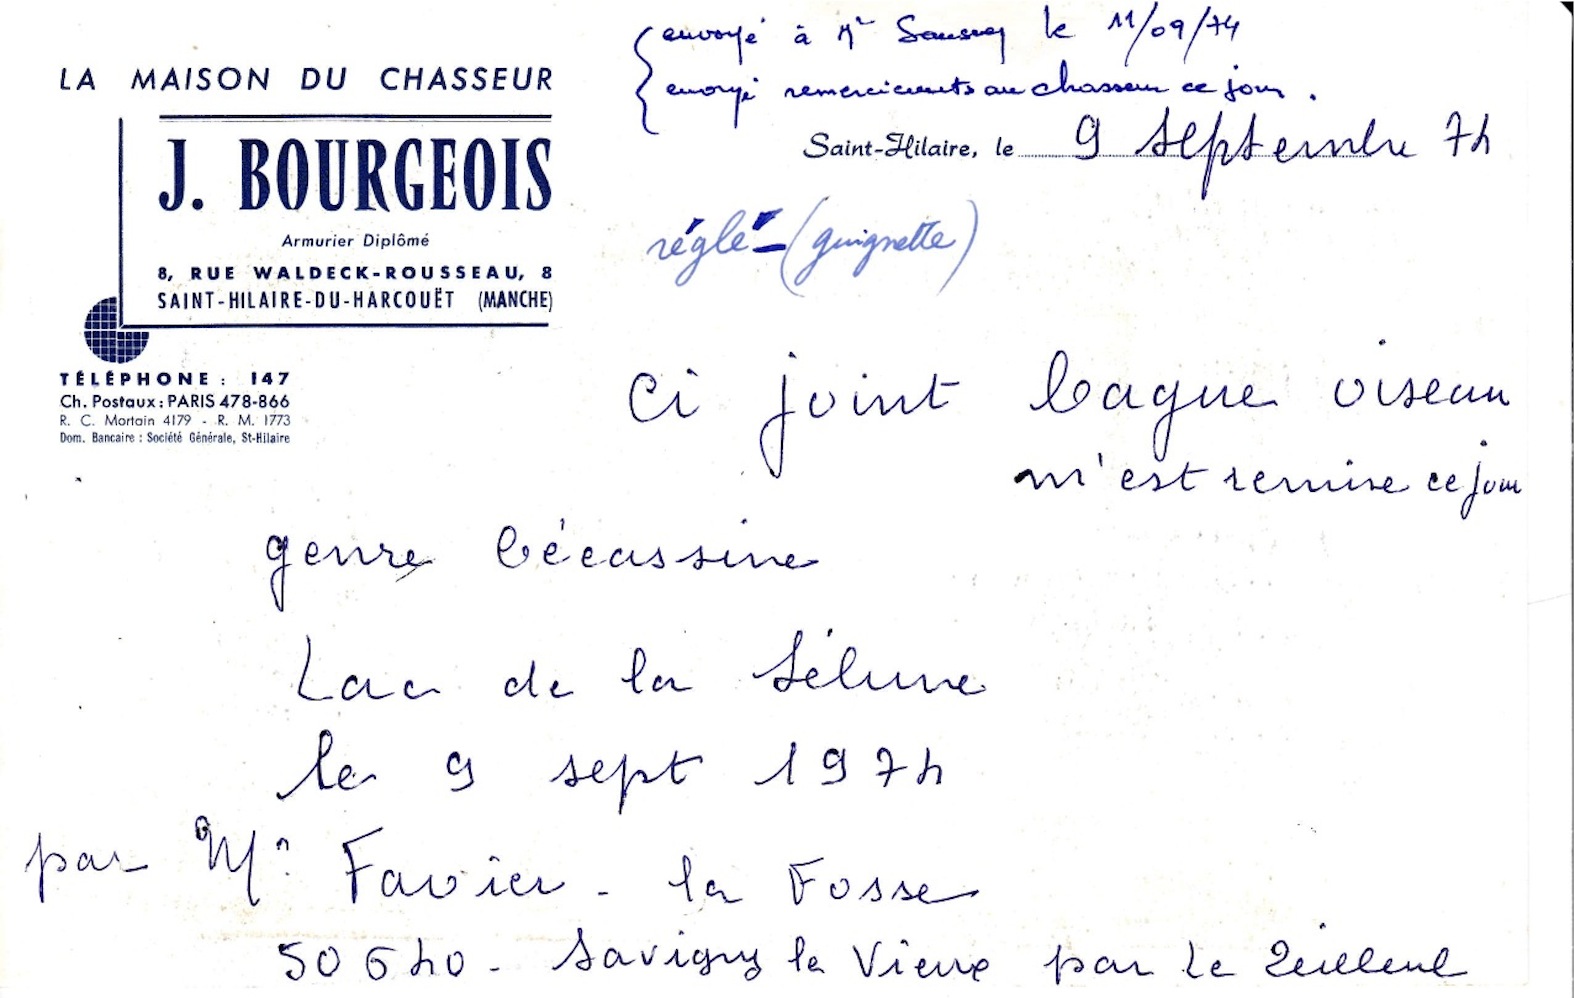 LA MAISON DU CHASSEUR
J. BOURGEOIS
Armurier Diplômé
8, RUE WALDECK-ROUSSEAU, 8
SAINT-HILAIRE-DU-HARCOUËT (MANCHE)
TÉLÉPHONE : 147
Ch. Postaux : PARIS 478-866
R. C. Mortain 4179 - R. M. 1773
Dom. Bancaire : Société Générale, St-Hilaire
envoyé à Mr le 11/09/74
envoyé remerciements au chasseur ce jour.
Saint-Hilaire, le 9 septembre 74
réglé - (guignette)
Ci joint bague oiseau
m'est remise ce jour
genre bécassine
Lac de la Sélune
le 9 sept 1974
par Mr Favier - la Fosse
50640 - Savigny le Vieux par Le Teilleul